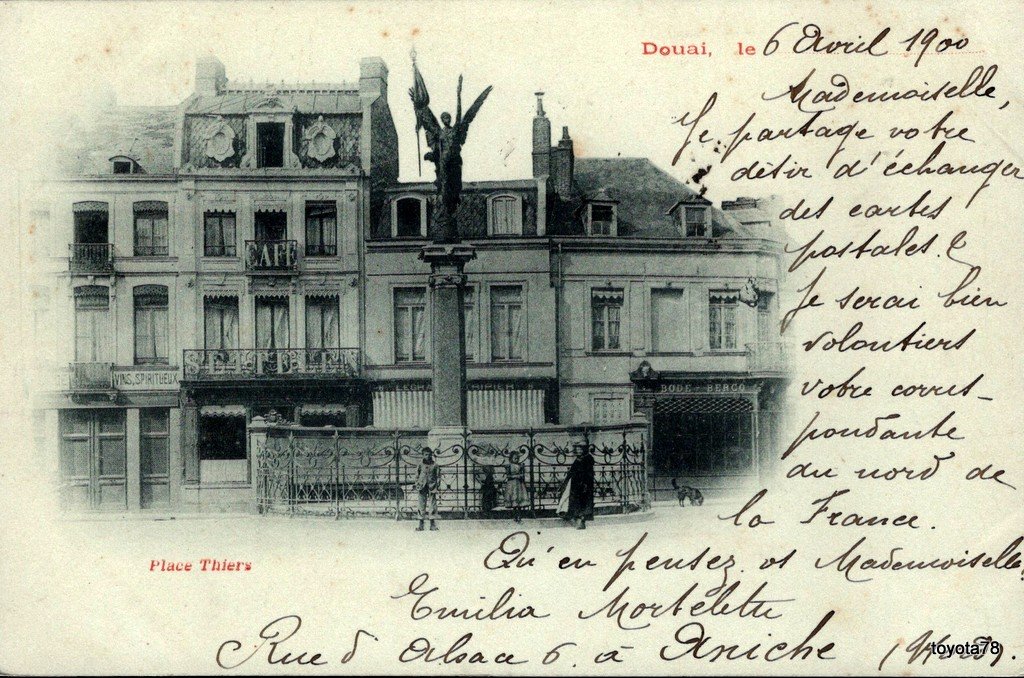 Douai, le 6 Avril 1900
Mademoiselle,
Je partage votre
désir d'échanger
des cartes
postales. &
Je serai bien
volontiers
votre corres-
pondante
du nord de
la France.
Qu'en pensez vs Mademoiselle
Emilia Mortelette
Rue d'Alsace 6. à Aniche (Nord).
CAFÉ
VINS, SPIRITUEUX
BODE BERCO
Place Thiers
toyota78